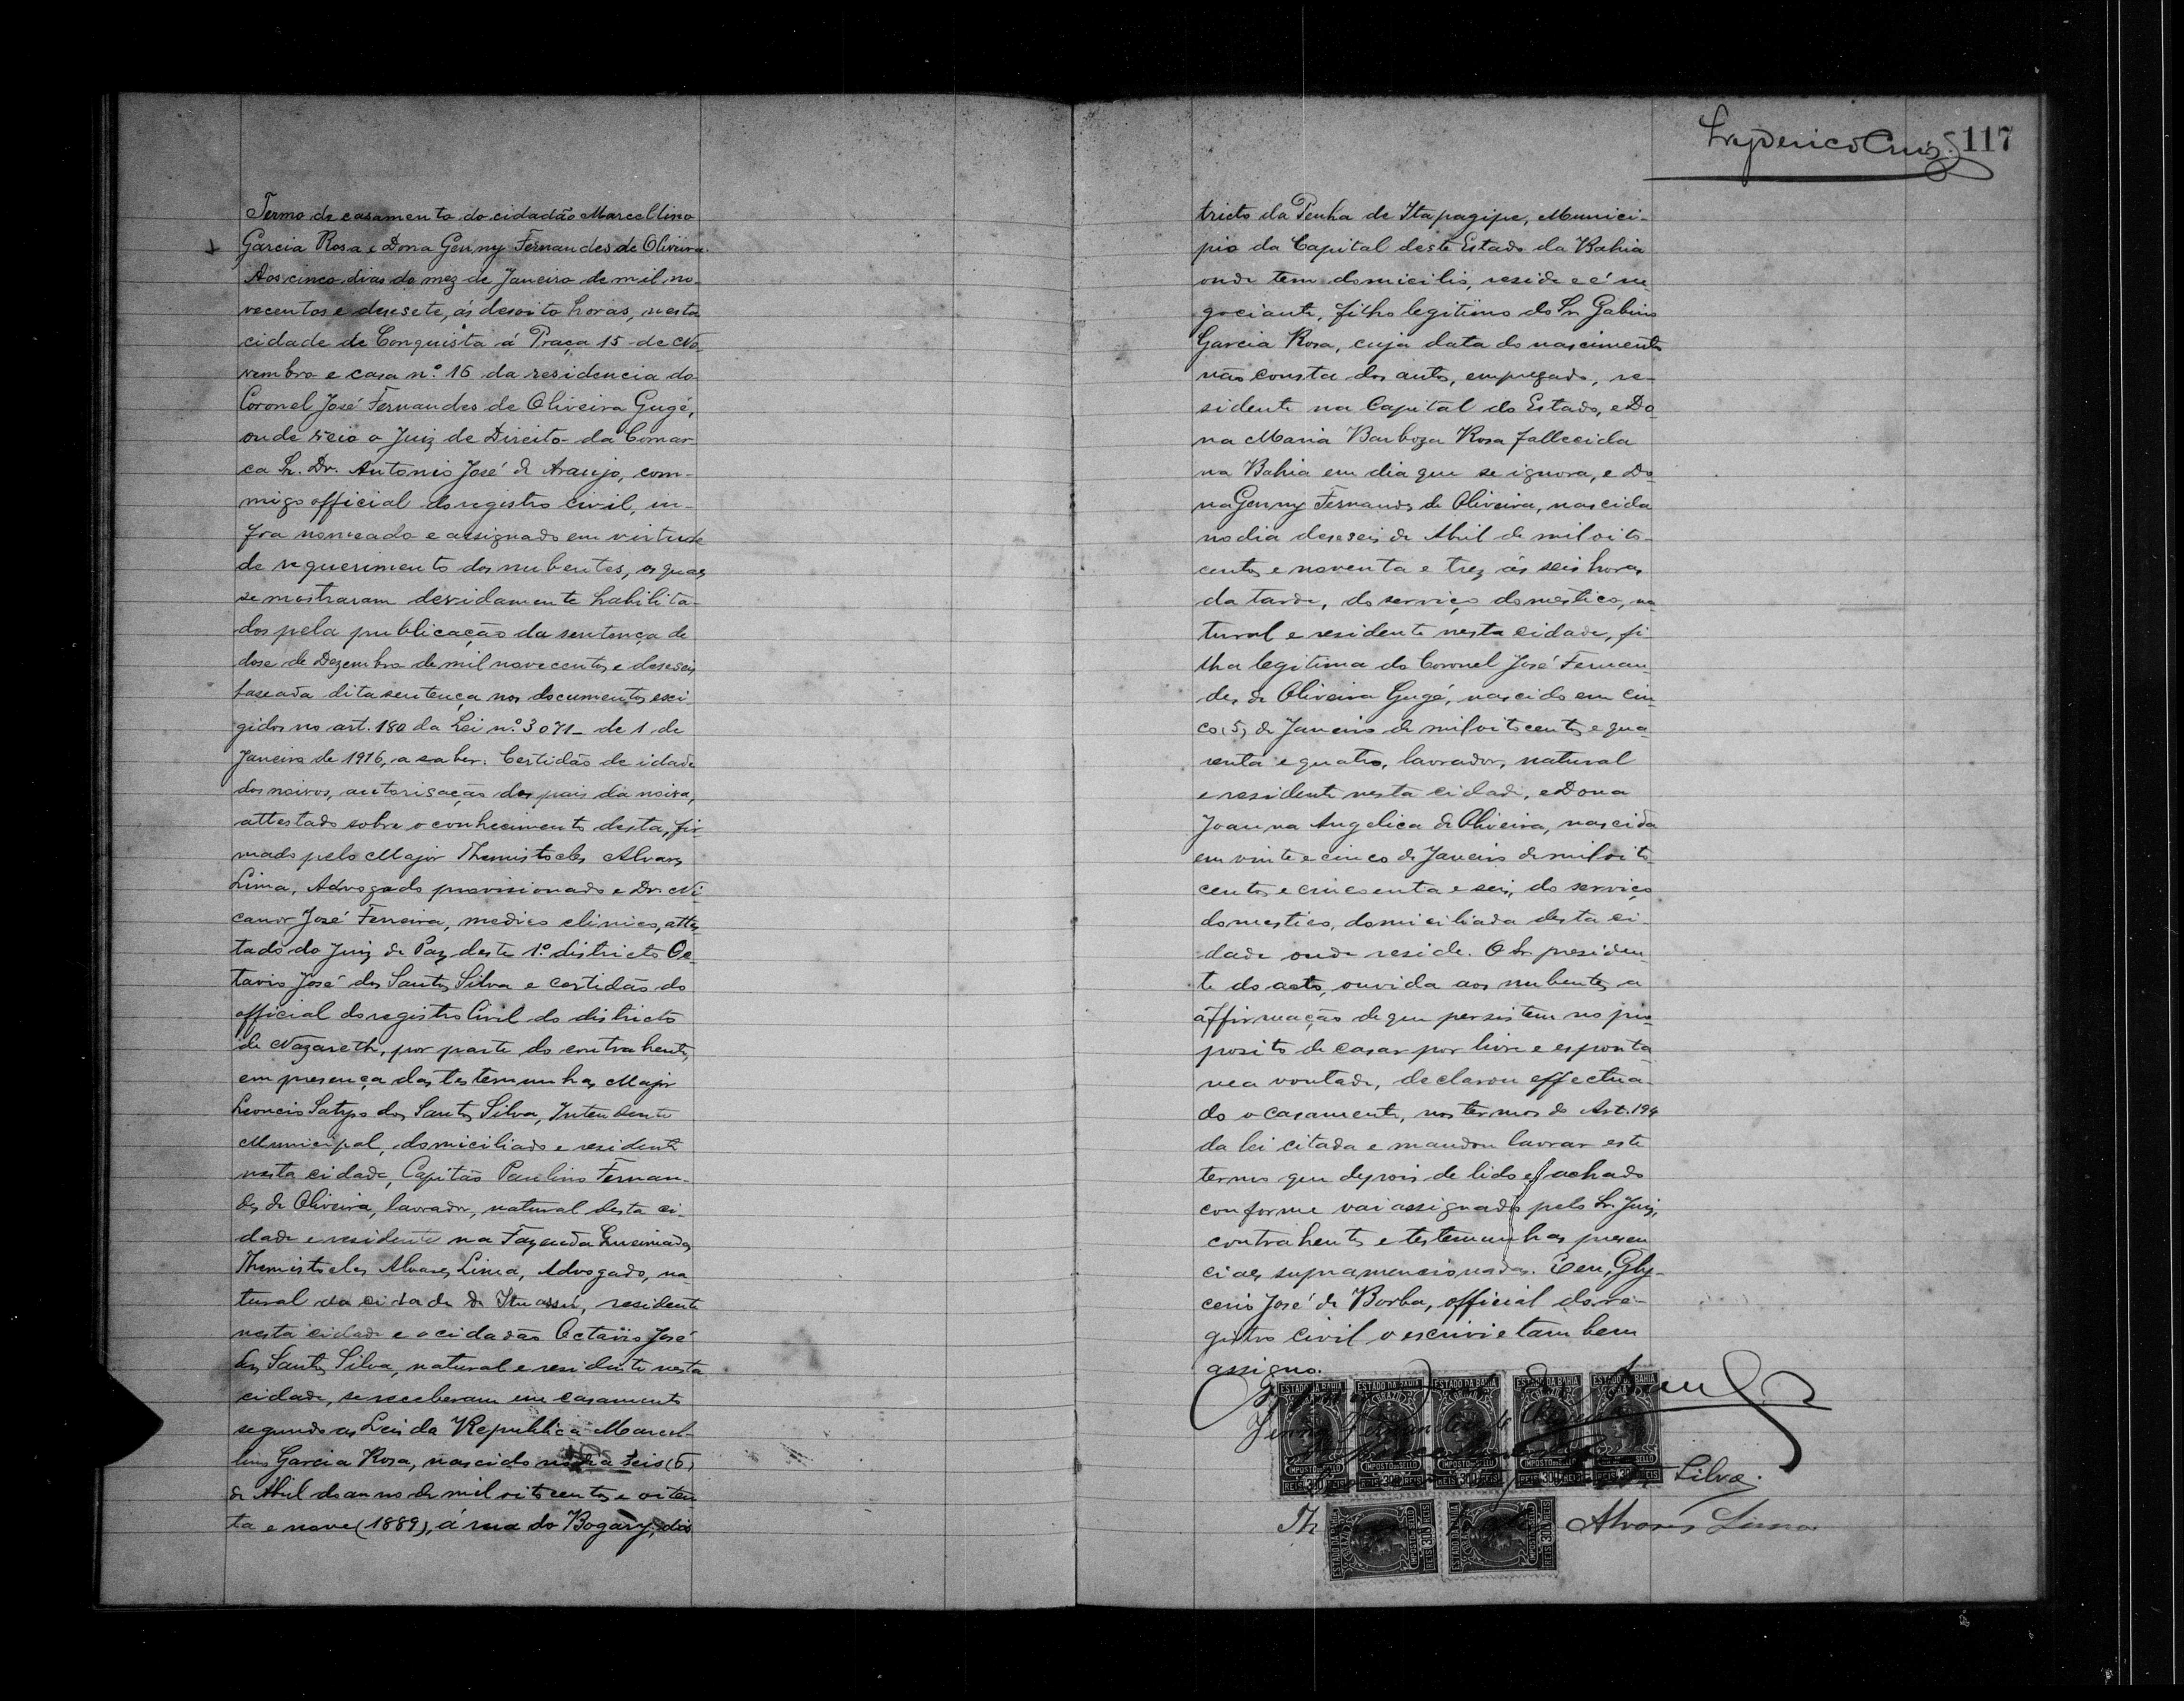 117
Termo de casamento do cidadão Marcellino
Garcia Rosa e Dona Genny Fernandes de Oliveira.
Aos cinco dias do mez de Janeiro de mil no-
vecentos e desesete, ás desoito horas, nesta
cidade de Conquista á Praça 15 de No-
vembro e casa n.º 16 da residencia do
Coronel José Fernandes de Oliveira Gugé,
onde veio o Juiz de Direito da Comar-
ca Sr. Dr. Antonio José de Araujo, com-
migo official do registro civil, in-
fra nomeado e assignado em virtude
de requerimento dos nubentes, os quaes
se mostraram devidamente habilita-
dos pela publicação da sentença de
dose de Dezembro de mil novecentos e deseseis
baseada dita sentença nos documentos exi-
gidos no art. 180 da Lei n.º 3071 - de 1 de
Janeiro de 1916, a saber: Certidão de idade
dos noivos, autorisação dos pais da noiva,
attestado sobre o conhecimento desta, fir-
mado pelo Major Themistocles Alvares
Lima, Advogado provisionado e Dr. Ni-
canor José Ferreira, medico clinico, attes-
tado do Juiz de Paz deste 1.º districto Oc-
tavio José dos Santos Silva e certidão do
official do registro Civil do districto
de Nazareth, por parte do contrahente,
em presença das testemunhas Major
Leoncio Satyro dos Santos Silva, Intendente
Municipal, domiciliado e residente
nesta cidade, Capitão Paulino Fernan-
des de Oliveira, lavrador, natural desta ci-
dade e residente na Fazenda
Themistocles Alvares Lima, Advogado, na-
tural da cidade de Ituassú, residente
nesta cidade e o cidadão Octavio José
dos Santos Silva, natural e residente nesta
cidade, se receberam em casamento
segundo as Leis da Republica Marcel-
lino Garcia Rosa, nascido no dia seis (6)
de Abril do anno de mil oitocentos e oiten-
ta e nove (1889), á rua do Bogary, dis-
tricto da Penha de Itapagipe, Munici-
pio da Capital deste Estado da Bahia
onde tem domicilio, reside e é ne-
gociante, filho legitimo do Sr. Gabino
Garcia Rosa, cuja data do nascimento
não consta dos autos, empregado, re-
sidente na Capital do Estado, e Do-
na Maria Barboza Rosa fallecida
na Bahia em dia que se ignora, e Do-
na Genny Fernandes de Oliveira, nascida
no dia deseseis de Abril de mil oito-
centos e noventa e trez ás seis horas
da tarde, do serviço domestico, na-
tural e residente nesta cidade, fi-
lha legitima do Coronel José Fernan-
des de Oliveira Gugé, nascido em cin-
co (5) de Janeiro de mil oitocentos e qua-
renta e quatro, lavrador, natural
e residente nesta cidade, e Dona
Joanna Angelica de Oliveira, nascida
em vinte e cinco de Janeiro de mil oito-
centos e cincoenta e seis, do serviço
domestico, domiciliada desta ci-
dade onde reside. O Sr. presiden-
te do acto, ouvida aos nubentes a
affirmação de que persistem no pro-
posito de casar por livre e esponta-
nea vontade, declarou effectua-
do o casamento, nos termos do Art. 194
da lei citada e mandou lavrar este
termo que depois de lido e achado
conforme vai assignado pelo Sr. Juiz,
contrahentes e testemunhas presen-
ciaes supramencionadas. E eu, Gly-
cerio José de Borba, official do re-
gistro civil o escrivi e tambem
assigno.
ESTADO DA BAHIA
IMPOSTO DO SELLO
REIS 300 REIS
Silva.
Th
Alvares Lima